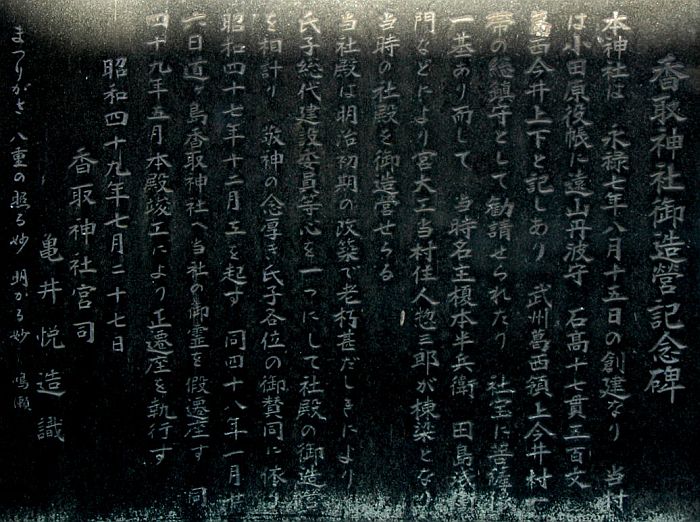 香取神社御造營記念碑
本神社は 永禄七年八月十五日の創建なり 当村
は小田原役帳に遠山丹波守 石高十七貫三百文
葛西今井上下と記しあり 武州葛西領上今井村一
帯の総鎮守として勧請せられたり 社宝に菩薩像
一基あり而して 当時名主榎本半兵衛 田島浅
門などにより宮大工当村住人惣三郎が棟梁となり
当時の社殿を御造営せらる
当社殿は明治初期の改築で老朽甚だしきにより
氏子総代建設委員等心を一つにして社殿の御造営
を相計り 敬神の念厚き氏子各位の御賛同に依り
昭和四十七年十二月工を起す 同四十八年一月廿
六日道ヶ島香取神社へ当社の御霊を假遷座す 同
四十九年五月本殿竣工により正遷座を執行す
昭和四十九年七月二十七日
香取神社宮司
亀井悦造識
まつりがき 八重の照る妙 明かる妙 鳴瀬